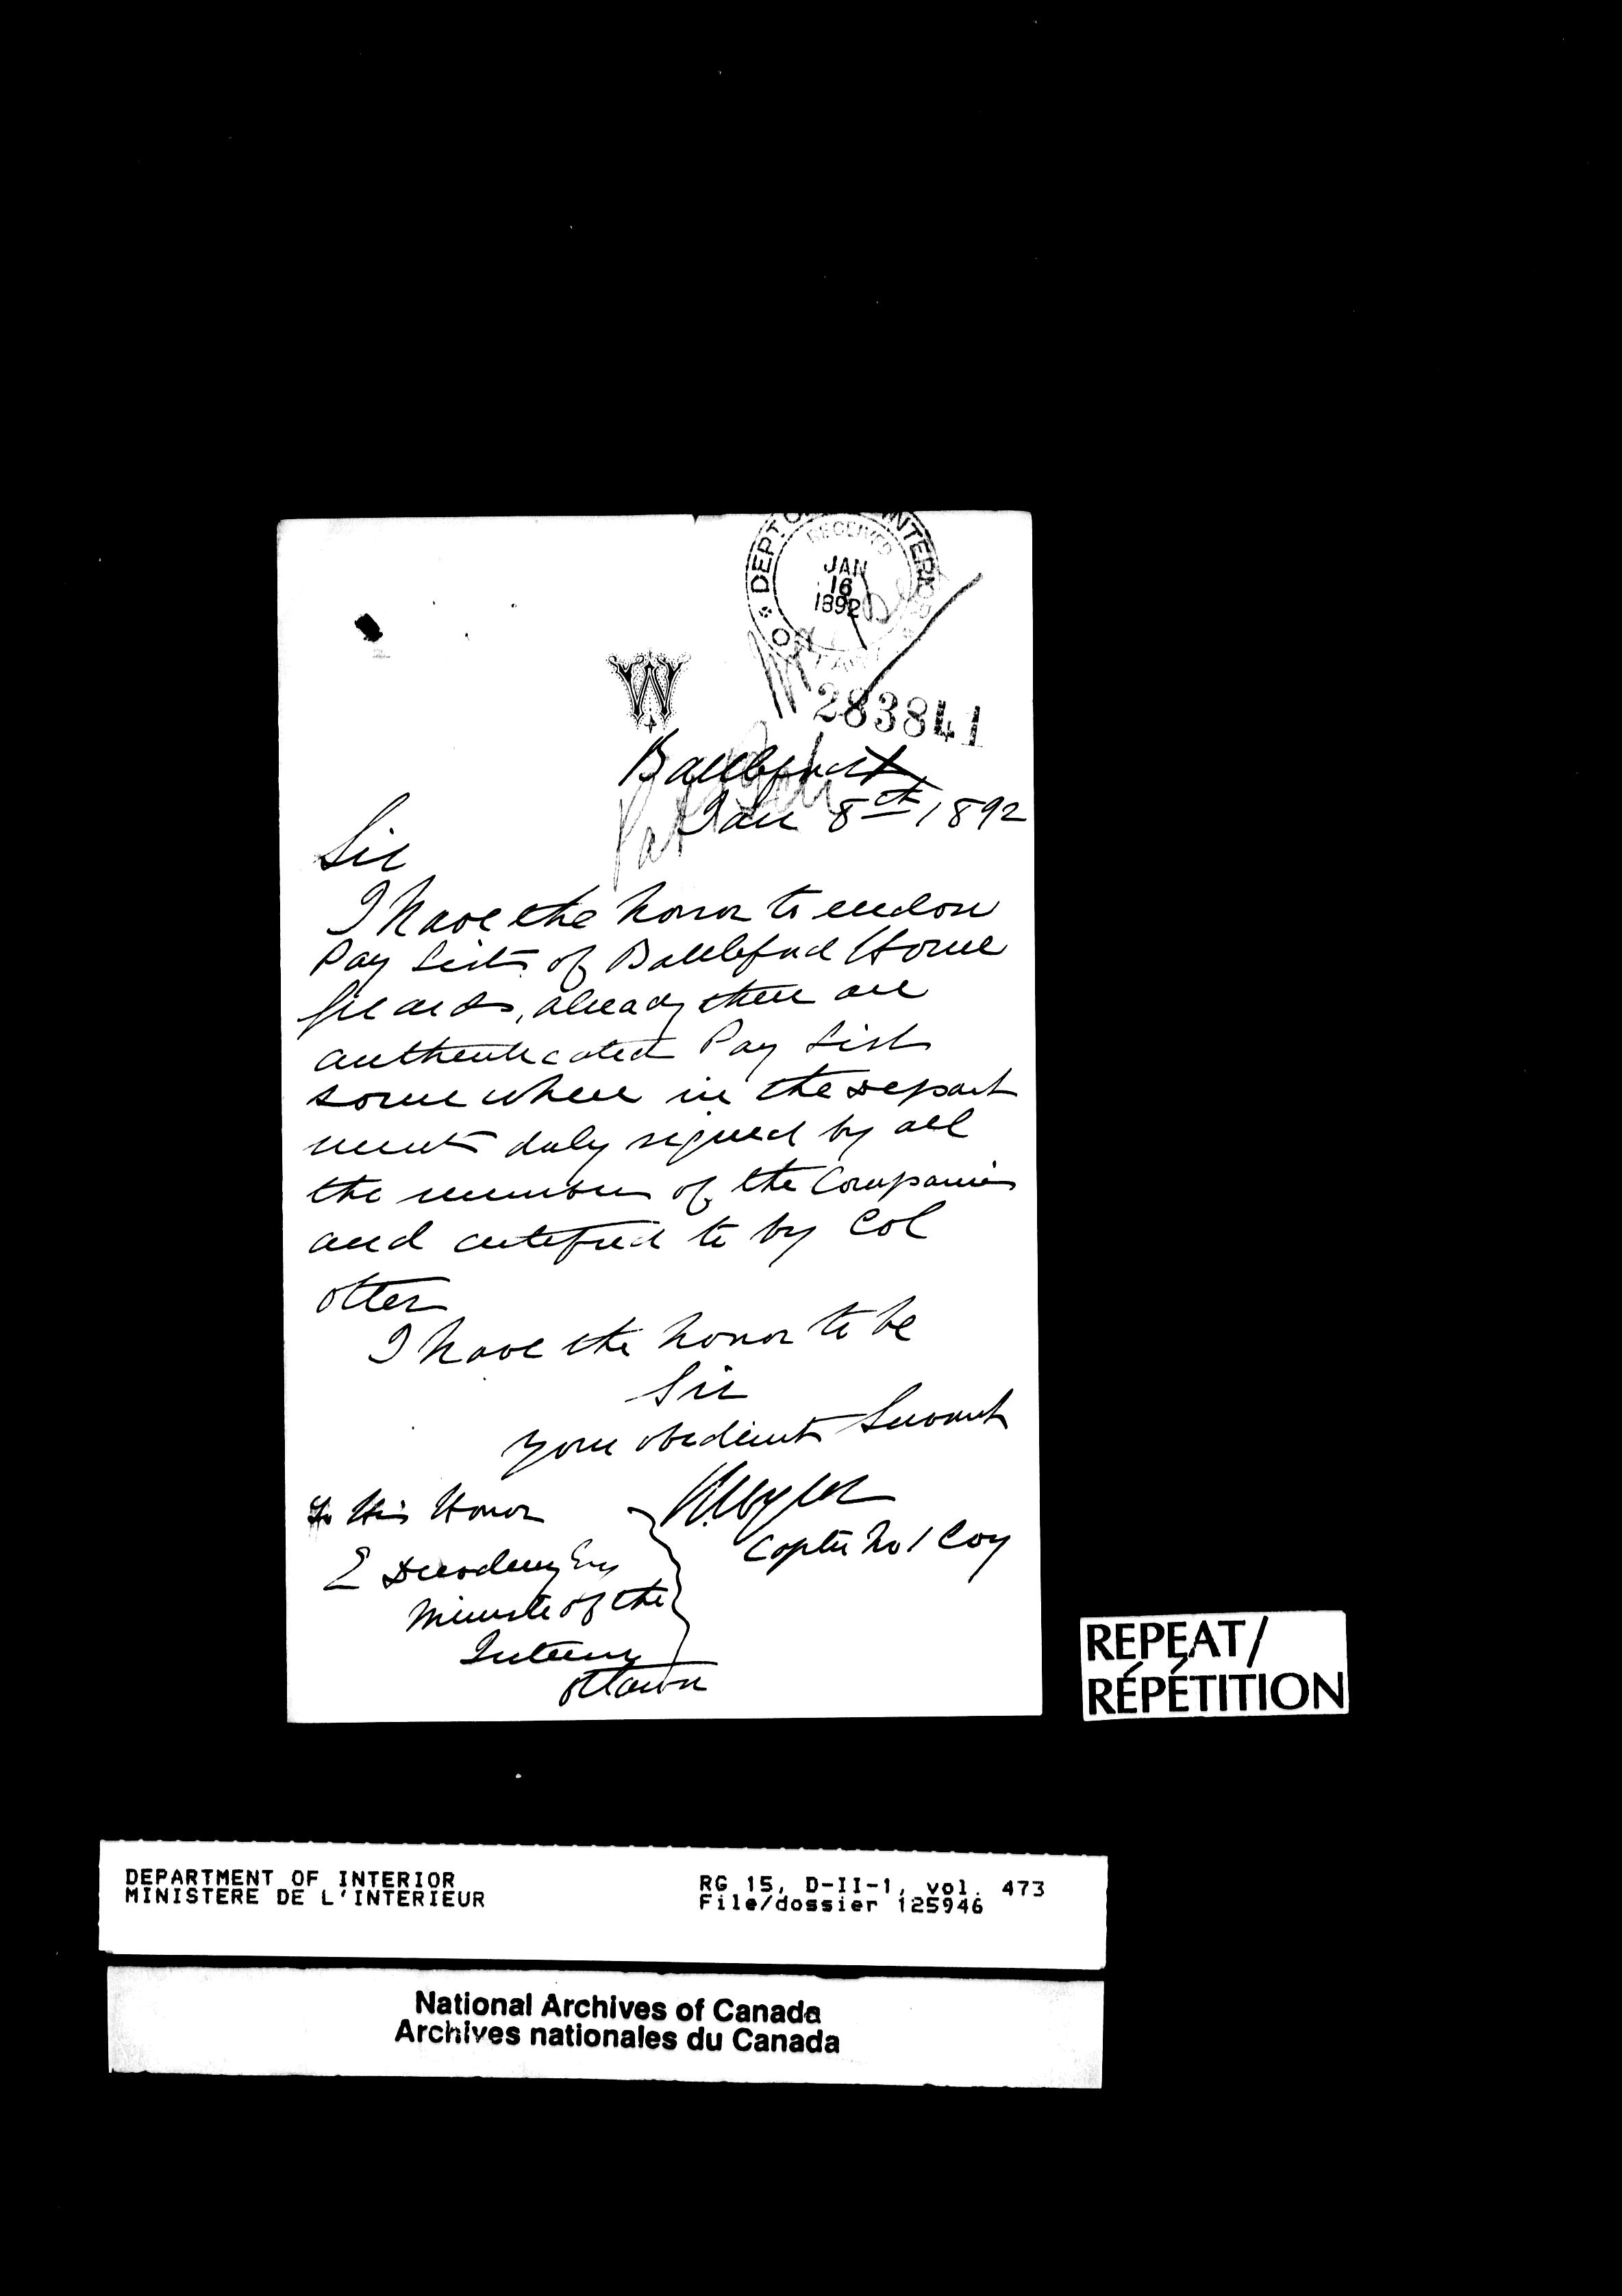 DEPT OF INTERIOR
RECEIVED
JAN
16
1892
OTTAWA
W
283841
Battleford
Jan 8th 1892
Sir
I have the honor to enclose
Pay Lists of Battleford Home
Guards, already there are
authenticated Pay Lists
some where in the Depart
ment duly signed by all
the members of the Companies
and certified to by Col
Otter
I have the honor to be
Sir
Your obedient Servant
Captn No 1 Coy
To His Honor
E Dewdney Esq
Minister of the
Interior
Ottawa
REPEAT/
RÉPÉTITION
DEPARTMENT OF INTERIOR
MINISTERE DE L'INTERIEUR
RG 15, D-II-1, vol. 473
File/dossier 125946
National Archives of Canada
Archives nationales du Canada